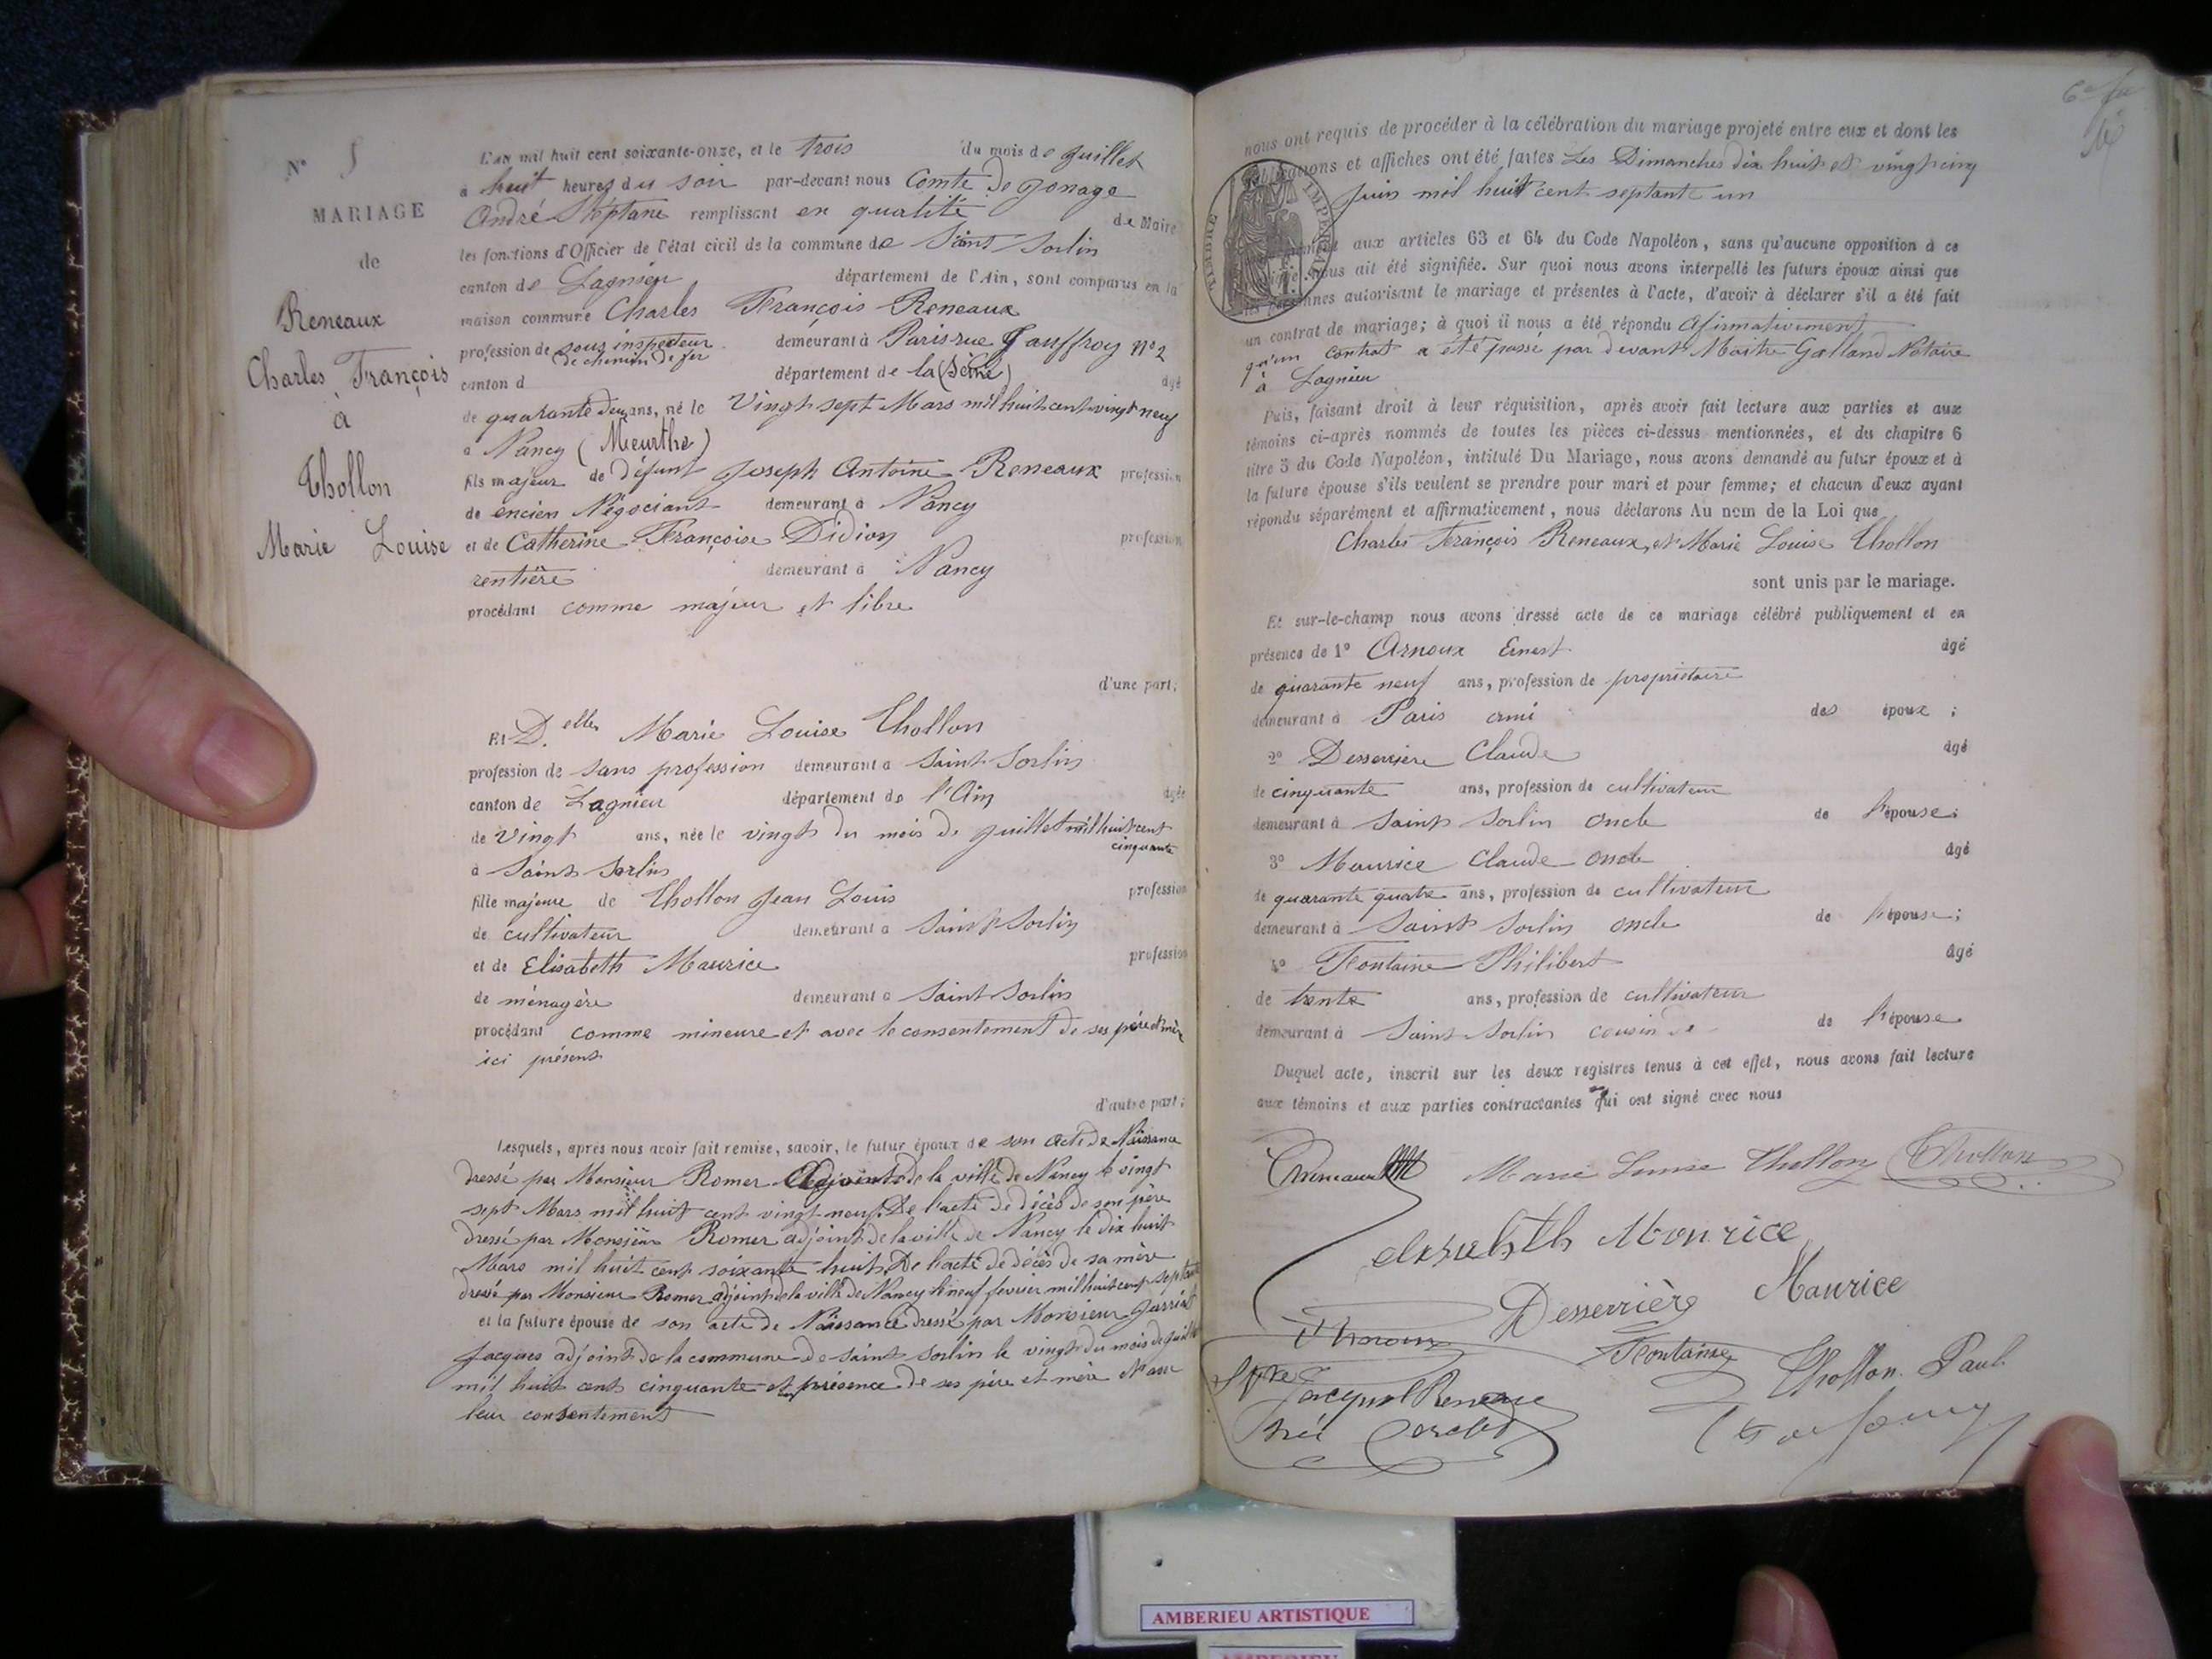 N° 5
MARIAGE
de
Reneaux
Charles François
à
Thollon
Marie Louise
L'an mil huit cent soixante-onze, et le trois du mois de Juillet
à huit heures du soir par-devant nous Comte de Jonage
André Stéptane remplissant en qualité de Maire
les fonctions d'Officier de l'état civil de la commune de Saint Sorlin
canton de Lagnieu département de l'Ain, sont comparus en la
maison commune Charles François Reneaux
profession de sous inspecteur de chemin de fer demeurant à Paris rue Jauffroy N° 2
canton d département de la (Seine) âgé
de quarante deux ans, né le Vingt sept Mars mil huit cent vingt neuf
à Nancy (Meurthe)
fils majeur de défunt Joseph Antoine Reneaux profession
de encien Négociant demeurant à Nancy
et de Catherine Françoise Didion profession
rentière demeurant à Nancy
procédant comme majeur et libre
d'une part;
Et D.elle Marie Louise Thollon
profession de sans profession demeurant à Saint Sorlin
canton de Lagnieu département de l'Ain âgée
de vingt ans, née le vingt du mois de Juillet mil huit cent cinquante
à Saint Sorlin
fille majeure de Thollon Jean Louis profession
de cultivateur demeurant à Saint Sorlin
et de Elisabeth Maurice profession
de ménagère demeurant à Saint Sorlin
procédant comme mineure et avec le consentement de ses père et mère
ici présent
d'autre part;
Lesquels, après nous avoir fait remise, savoir, le futur époux de son acte de Naissance
dressé par Monsieur Romer Adjoint de la ville de Nancy le vingt
sept Mars mil huit cent vingt neuf. De l'acte de décès de son père
dressé par Monsieur Romer adjoint de la ville de Nancy le dix huit
Mars mil huit cent soixante huit. De l'acte de décès de sa mère
dressé par Monsieur Romer adjoint de la ville de Nancy le neuf fevrier mil huit cent septante
et la future épouse de son acte de Naissance dressé par Monsieur
Jacques adjoint de la commune de Saint Sorlin le vingt du mois de Juillet
mil huit cent cinquante et présence de ses père et mère et avec
leur consentement
nous ont requis de procéder à la célébration du mariage projeté entre eux et dont les
publications et affiches ont été faites Les Dimanches dix huit et vingt cinq
Juin mil huit cent septante un
TIMBRE IMPERIAL
aux articles 63 et 64 du Code Napoléon, sans qu'aucune opposition à ce
nous ait été signifiée. Sur quoi nous avons interpellé les futurs époux ainsi que
les personnes autorisant le mariage et présentes à l'acte, d'avoir à déclarer s'il a été fait
un contrat de mariage; à quoi il nous a été répondu Afirmativement
qu'un contrat a été passé par devant Maitre Galland Notaire
à Lagnieu
Puis, faisant droit à leur réquisition, après avoir fait lecture aux parties et aux
témoins ci-après nommés de toutes les pièces ci-dessus mentionnées, et du chapitre 6
titre 5 du Code Napoléon, intitulé Du Mariage, nous avons demandé au futur époux et à
la future épouse s'ils veulent se prendre pour mari et pour femme; et chacun d'eux ayant
répondu séparément et affirmativement, nous déclarons Au nom de la Loi que
Charles François Reneaux, et Marie Louise Thollon
sont unis par le mariage.
Et sur-le-champ nous avons dressé acte de ce mariage célébré publiquement et en
présence de 1° Arnoux Ernest âgé
de quarante neuf ans, profession de propriétaire
demeurant à Paris ami des époux;
2° Desserrière Claude âgé
de cinquante ans, profession de cultivateur
demeurant à Saint Sorlin oncle de l'épouse;
3° Maurice Claude oncle âgé
de quarante quatre ans, profession de cultivateur
demeurant à Saint Sorlin oncle de l'épouse;
4° Fontaine Philibert âgé
de trente ans, profession de cultivateur
demeurant à Saint Sorlin cousin de de l'épouse
Duquel acte, inscrit sur les deux registres tenus à cet effet, nous avons fait lecture
aux témoins et aux parties contractantes qui ont signé avec nous
Marie Louise Thollon Thollon
Elisabeth Mourice
Desserrière Maurice
Fontaine
Thollon Paul
AMBERIEU ARTISTIQUE
AMBERIEU